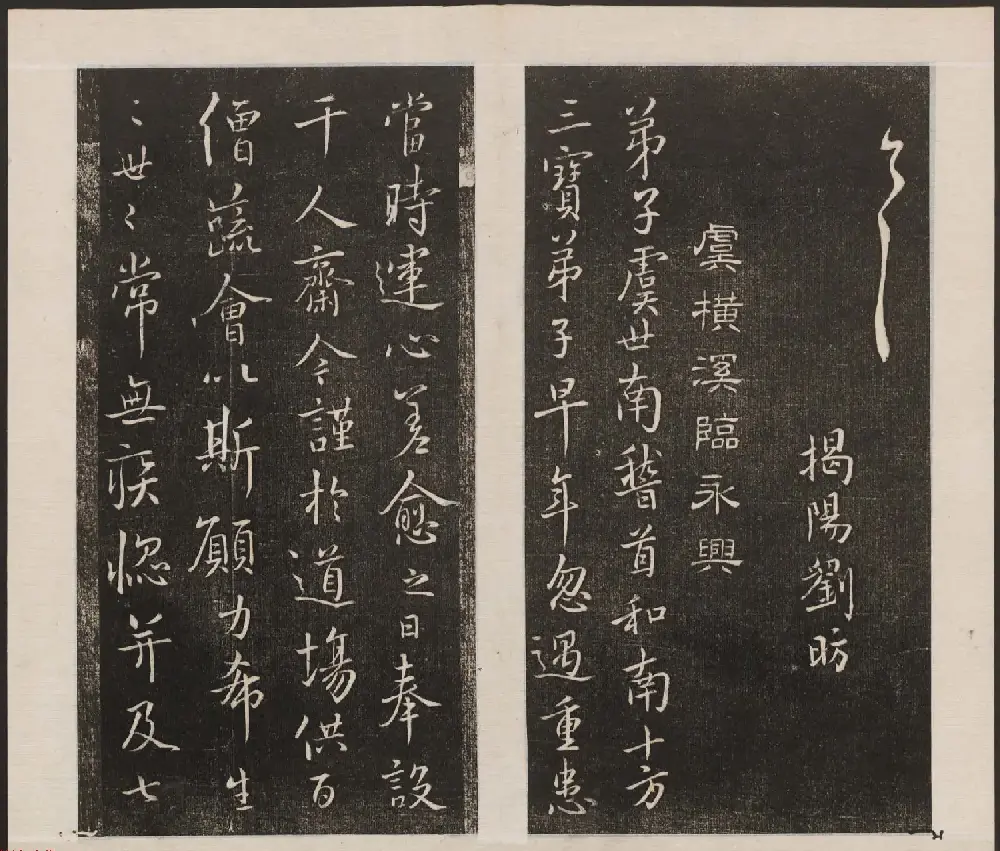 揭陽劉昉
虞橫溪臨永興
弟子虞世南稽首和南十方
三寶弟子早年忽遇重患
當時運心差愈之日奉設
千人齋今謹於道場供百
僧蔬會以斯願力希生
〻世〻常無疾惱并及七